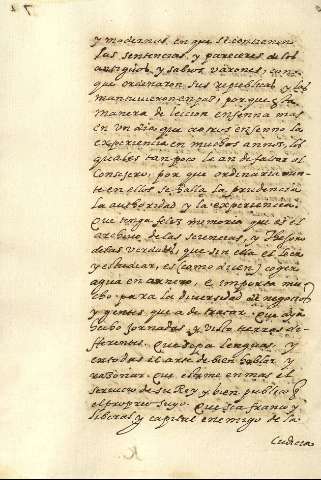 y modernas en que se contienen
las sentencias, y pareceres de los
antiguos y sabios varones, con
que ordenaron sus republicas y los
mantuvieron en paz, porque esta
manera de leccion enseña mas
en un dia que a otros enseño la
experiencia en muchos annos, los
quales tanpoco le an de faltar al
Consejero, por que ordinariamen
te en ellos se halla la prudencia
la authoridad y la experiencia.
Que tenga feliz memoria que es el
archivo de las sciencias, y thesoro
de las verdades, que sin ella es leer
y estudiar, es (como dizen) coger
agua en arnero, e importa mu
cho para la diversidad de negocios
y gentes que a de tratar. Que aya
hecho jornadas y visto tierras di
fferentes. Que sepa lenguas, y
en todas el arte de bien hablar y
razonar. Que estime en mas el
servicio de su Rey y bien publico q
el proprio suyo. Que sea franco y
liberal y capital enemigo de la
Cudicia